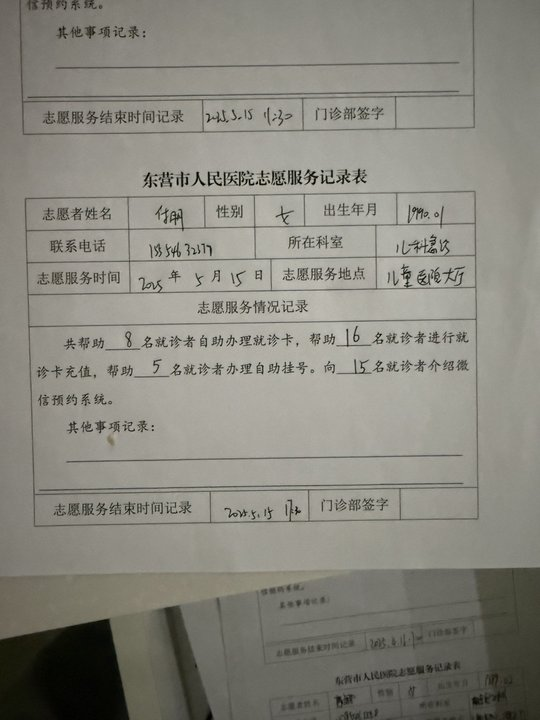 信预约系统。
其他事项记录：
志愿服务结束时间记录 2025.5.15 门诊部签字
东营市人民医院志愿服务记录表
志愿者姓名 性别 女 出生年月 1990.01
联系电话 所在科室
志愿服务时间 2025 年 5 月 15 日 志愿服务地点 儿童医院大厅
志愿服务情况记录
共帮助 8 名就诊者自助办理就诊卡，帮助 16 名就诊者进行就
诊卡充值，帮助 5 名就诊者办理自助挂号。向 15 名就诊者介绍微
信预约系统。
其他事项记录：
志愿服务结束时间记录 2025.5.15 门诊部签字
信预约系统。
其他事项记录：
志愿服务结束时间记录 门诊部签字
东营市人民医院志愿服务记录表
志愿者姓名 性别 女 出生年月
所在科室